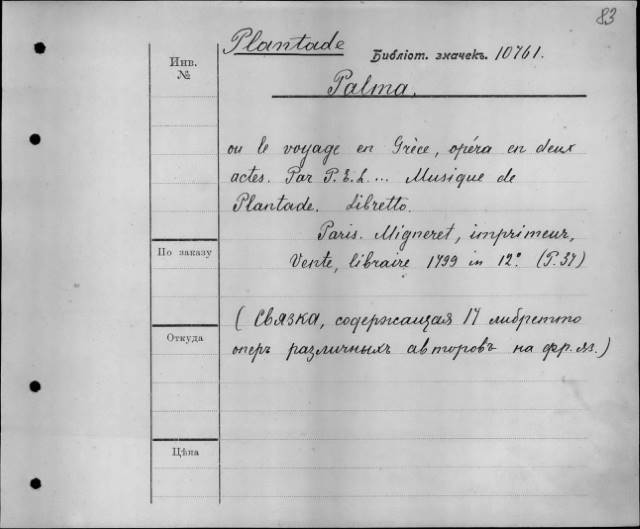 83
Plantade
Библіот. значекъ. 10761.
Инв.
№
Palma,
ou le voyage en Grèce, opéra en deux
actes. Par P.E.L... Musique de
Plantade. Libretto.
Paris. Migneret, imprimeur,
По заказу
Vente, libraire 1799 in 12º (P. 37)
(Связка, содержащая 17 либретто
Откуда
оперъ различныхъ авторовъ на фр. яз.)
Цѣна